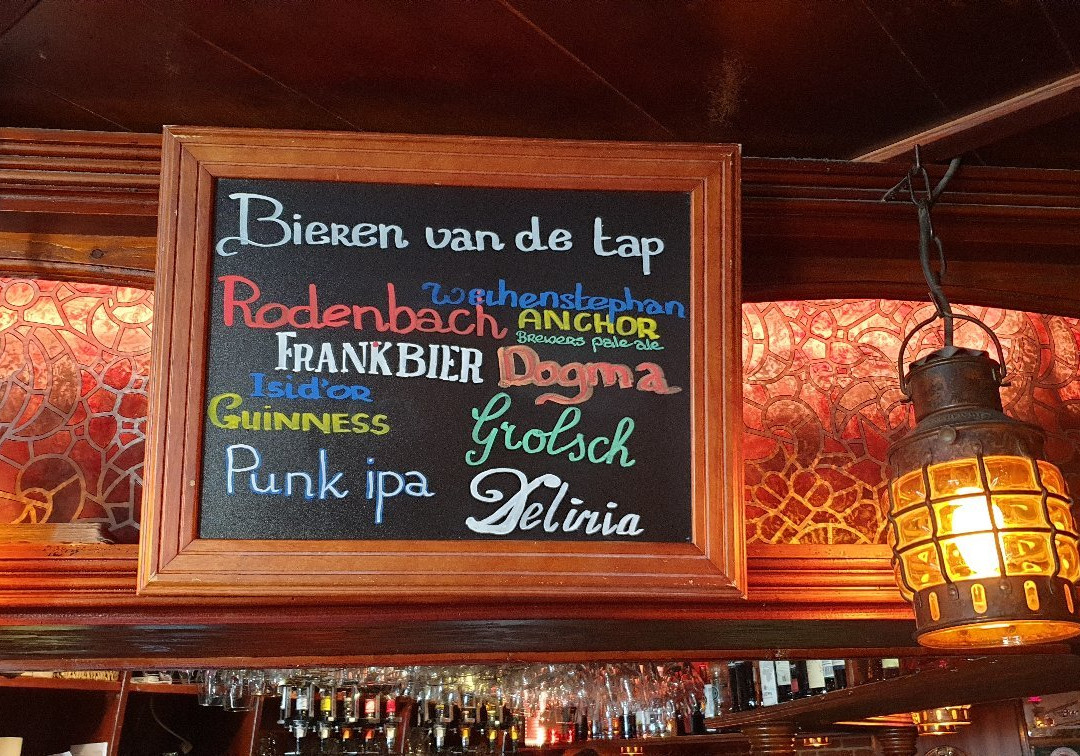 Bieren van de tap
Rodenbach
Weihenstephan
ANCHOR
Brewers pale ale
FRANKBIER
Dogma
Isid'or
Guinness
Grolsch
Punk ipa
Deliria